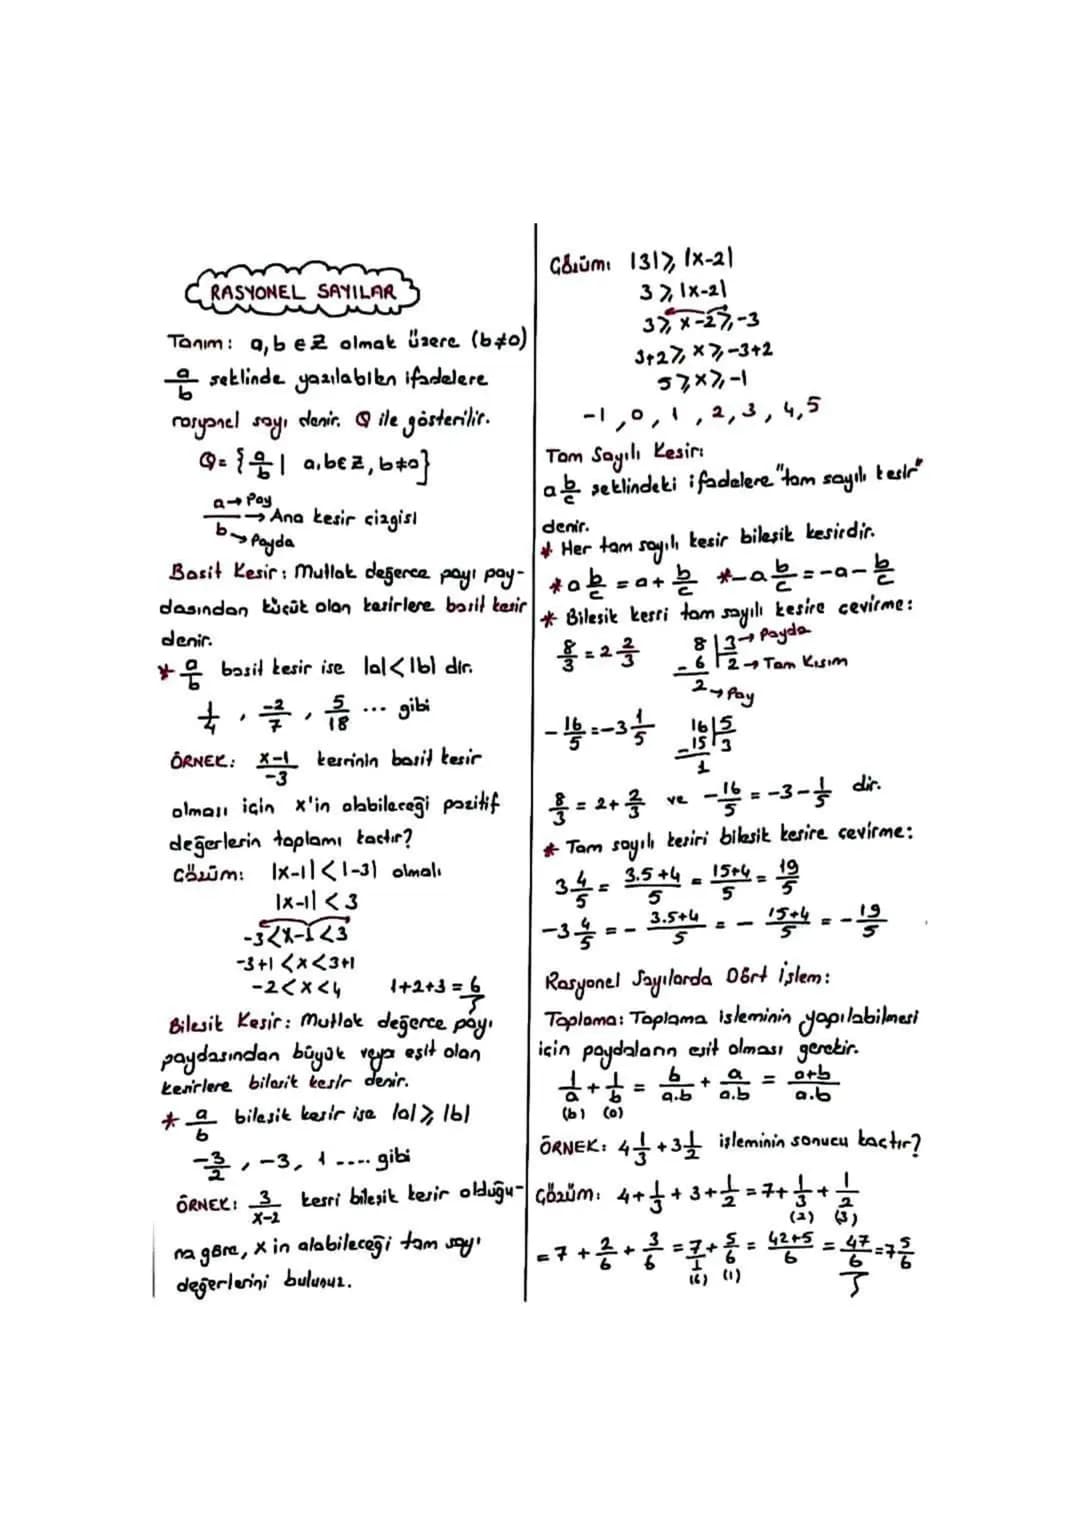 RASYONEL SAYILAR
Tanım: a,b ∈ Z olmak üzere (b≠0)
a/b seklinde yazılabilen ifadelere
rasyonel sayı denir. Q ile gösterilir.
Q = {a/b | a,b∈Z, b≠0}
a → Pay
→ Ana kesir cizgisi
b → Payda
Basit Kesir: Mutlak değerce payı pay-
dasından küçük olan kesirlere basit kesir
denir.
* a/b basit kesir ise |a|<|b| dir.
1/4 , -2/7 , 5/18 ... gibi
ÖRNEK: x-1/-3 kesrinin basit kesir
olması için x'in alabileceği pozitif
değerlerin toplamı kactır?
Gözüm: |x-1|<|-3| olmalı
|x-1|<3
-3<x-1<3
-3+1<x<3+1
-2<x<4 1+2+3=6
Bilesik Kesir: Mutlak değerce payı
paydasından büyük veya eşit olan
kesirlere bilesik kesir denir.
* a/b bilesik kesir ise |a|⩾|b|
-3/2 , -3, 1 .... gibi
ÖRNEK: 3/x-2 kesri bileşik kesir olduğu-
na göre, x in alabileceği tam sayı
değerlerini bulunuz.
Gözüm: |3|⩾|x-2|
3⩾|x-2|
3⩾x-2⩾-3
3+2⩾x⩾-3+2
5⩾x⩾-1
-1, 0, 1, 2, 3, 4, 5
Tam Sayılı Kesir:
a b/c seklindeki ifadelere "tam sayılı kesir"
denir.
* Her tam sayılı kesir bileşik kesirdir.
* a b/c = a + b/c * -a b/c = -a - b/c
* Bilesik kesri tam sayılı kesire cevirme:
8/3 = 2 2/3 8 | 3 → Payda
- 6 | 2 → Tam Kısım
2 → Pay
- 16/5 = -3 1/5 16 | 5
- 15 | 3
1
8/3 = 2 + 2/3 ve - 16/5 = -3 - 1/5 dir.
* Tam sayılı kesiri bilesik kesire cevirme:
3 4/5 = 3.5+4/5 = 15+4/5 = 19/5
-3 4/5 = - 3.5+4/5 = - 15+4/5 = - 19/5
Rasyonel Sayılarda Dört İşlem:
Toplama: Toplama isleminin yapılabilmesi
için paydaların esit olması gerekir.
1/a + 1/b = b/a.b + a/a.b = a+b/a.b
(b) (a)
ÖRNEK: 4 1/3 + 3 1/2 işleminin sonucu kactır?
Gözüm: 4 + 1/3 + 3 + 1/2 = 7 + 1/3 + 1/2
(2) (3)
= 7 + 2/6 + 3/6 = 7/1 + 5/6 = 42+5/6 = 47/6 = 7 5/6
(6) (1)